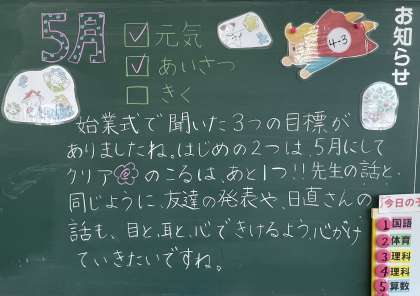 お知らせ
4-3
5月
元気
あいさつ
きく
始業式で聞いた3つの目標が
ありましたね。はじめの2つは、5月にして
クリア のこるは、あと1つ!!先生の話と、
同じように、友達の発表や、日直さんの
話も、目と、耳と、心できけるよう、心がけ
ていきたいですね。
今日の
1 国語
2 体育
3 理科
4 理科
5 算数